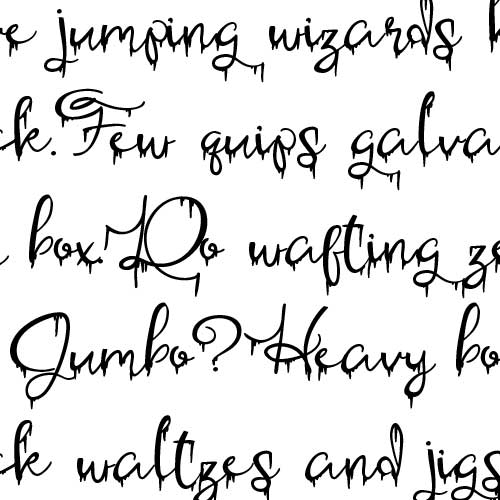 jumping wizards
ck. Few quips galva
box. Do wafting ze
Jumbo? Heavy bo
ck waltzes and jigs